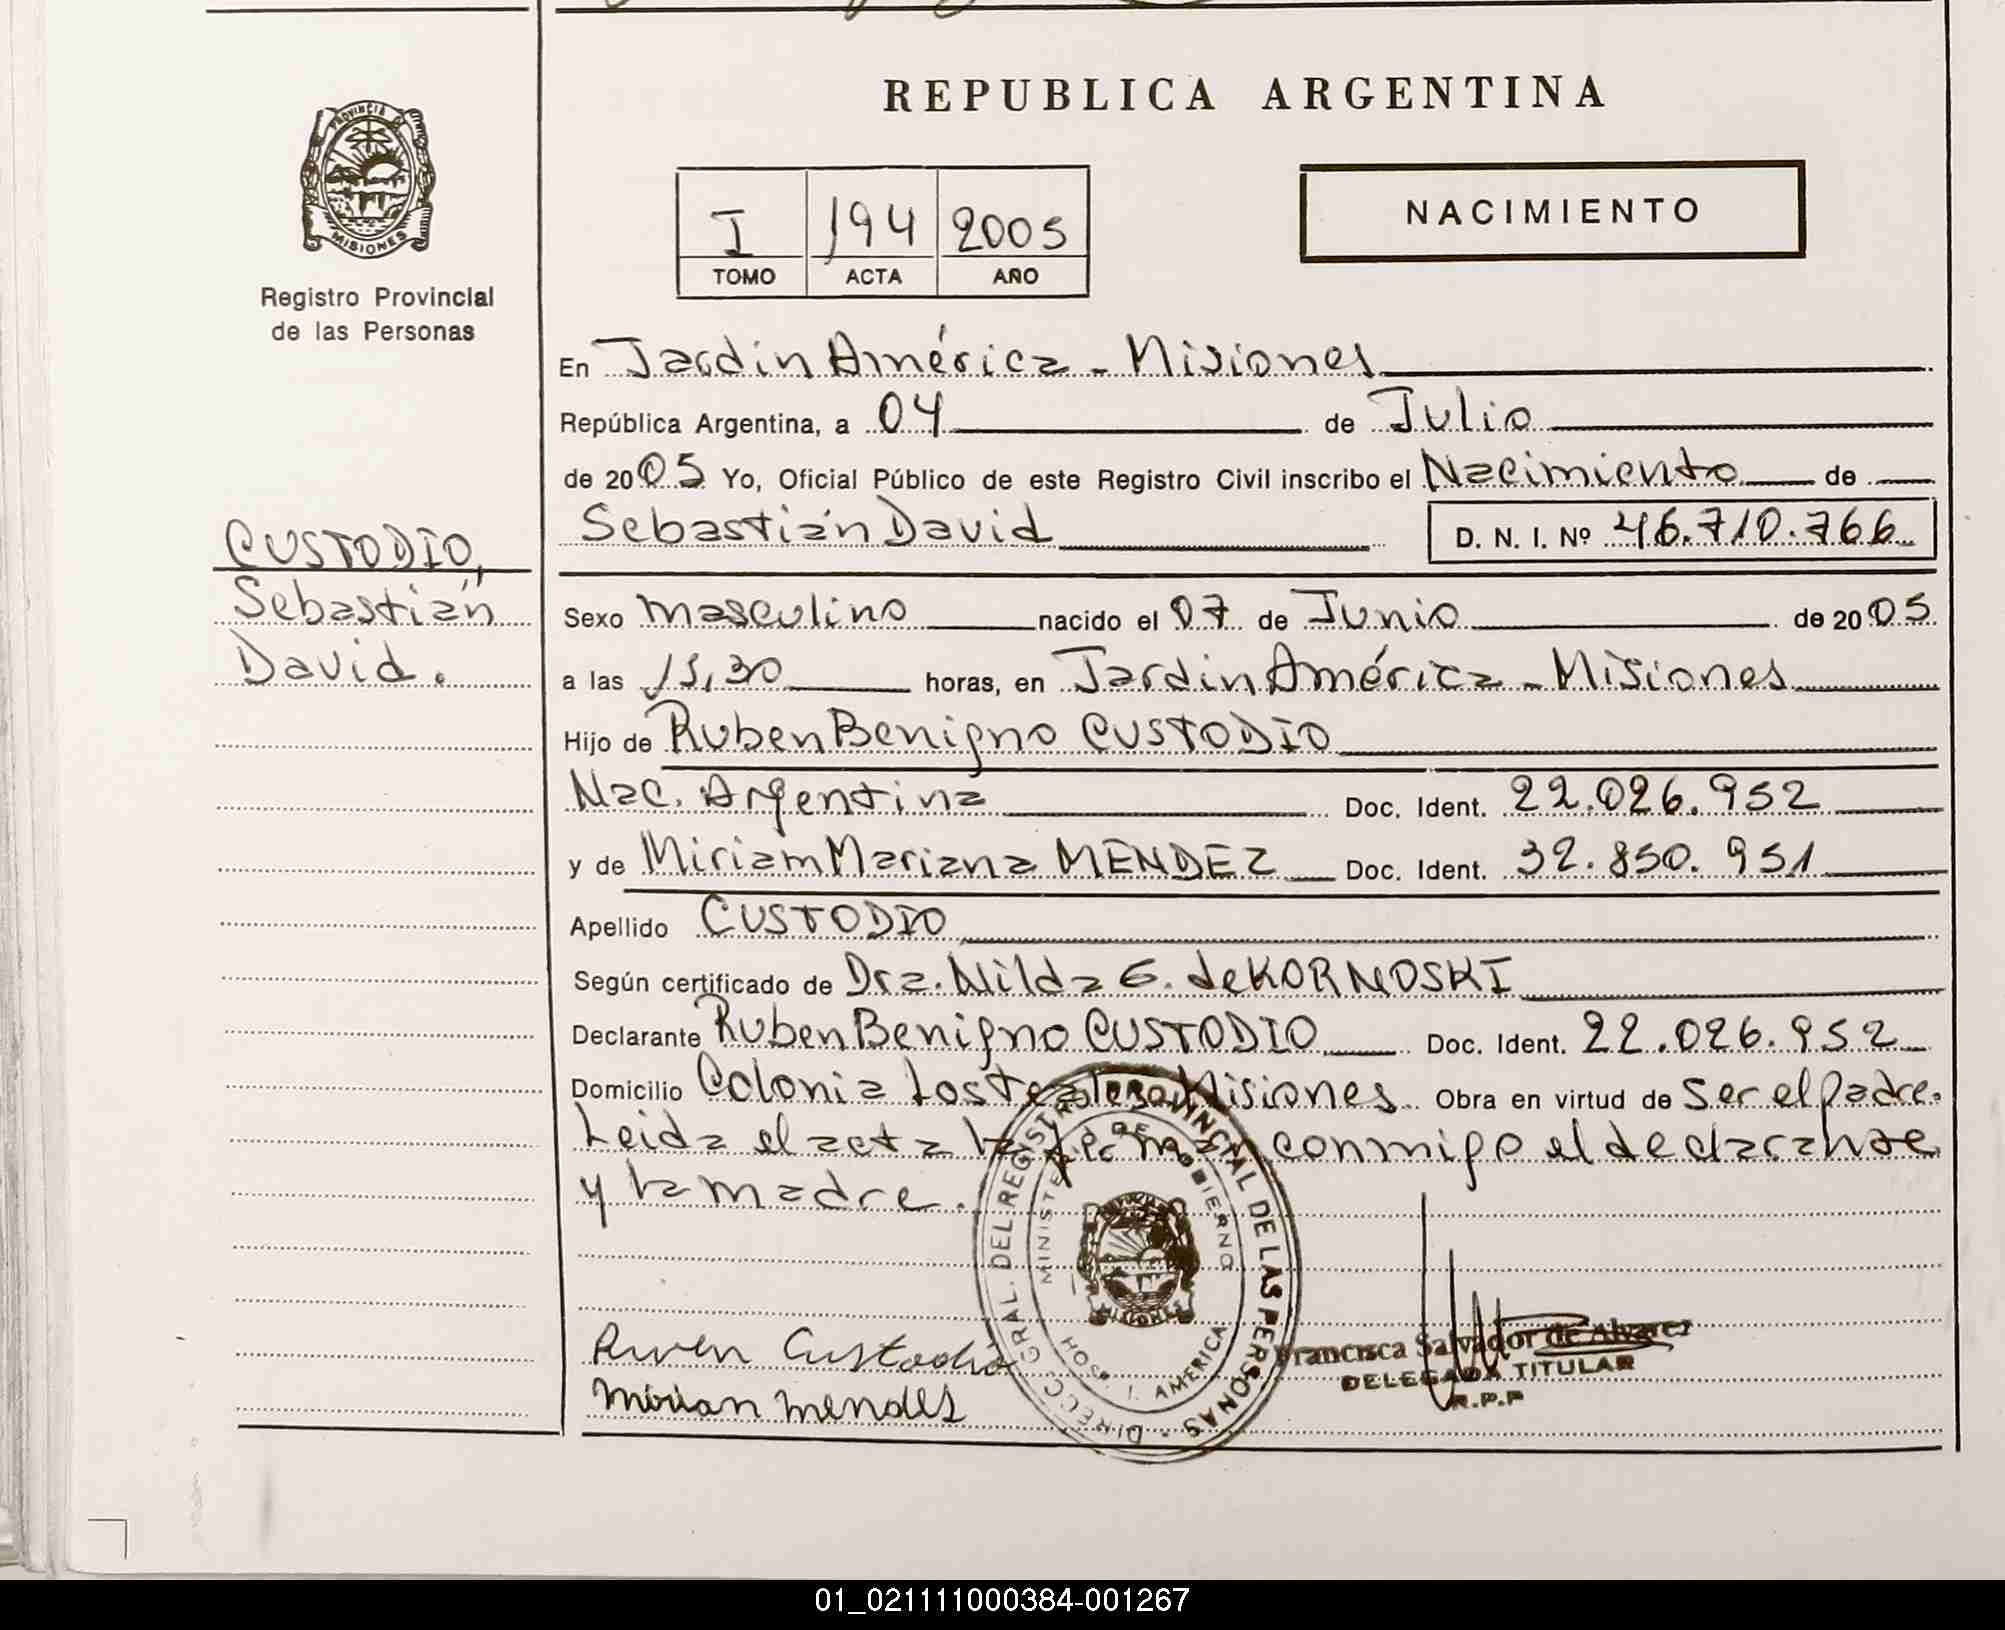 REPUBLICA ARGENTINA
PROVINCIA DE
MISIONES
Registro Provincial
de las Personas
I 194 2005
TOMO ACTA AÑO
NACIMIENTO
En Jardin América - Misiones
República Argentina, a 04 de Julio
de 2005 Yo, Oficial Público de este Registro Civil inscribo el Nacimiento de
Sebastián David D. N. I. Nº 46.710.766
CUSTODIO,
Sebastián
David.
Sexo masculino nacido el 07 de Junio de 2005
a las 15,30 horas, en Jardin América - Misiones
Hijo de Ruben Benigno CUSTODIO
Nac. Argentina Doc. Ident. 22.026.952
y de Miriam Mariana MENDEZ Doc. Ident. 32.850.951
Apellido CUSTODIO
Según certificado de Dra. Nilda G. de KORNOSKI
Declarante Ruben Benigno CUSTODIO Doc. Ident. 22.026.952
Domicilio Colonia Los Misiones Obra en virtud de Ser el padre.
Leida el acta la firman conmigo el declarante
y la madre.
DIRECC. GRAL. DEL REGISTRO PROVINCIAL DE LAS PERSONAS
MINISTERIO DE GOBIERNO
J. AMERICA
MISIONES
Ruven Custodio
Mirian Mendes
Francisca Salvador de Alvarez
DELEGADA TITULAR
R.P.P
01_021111000384-001267